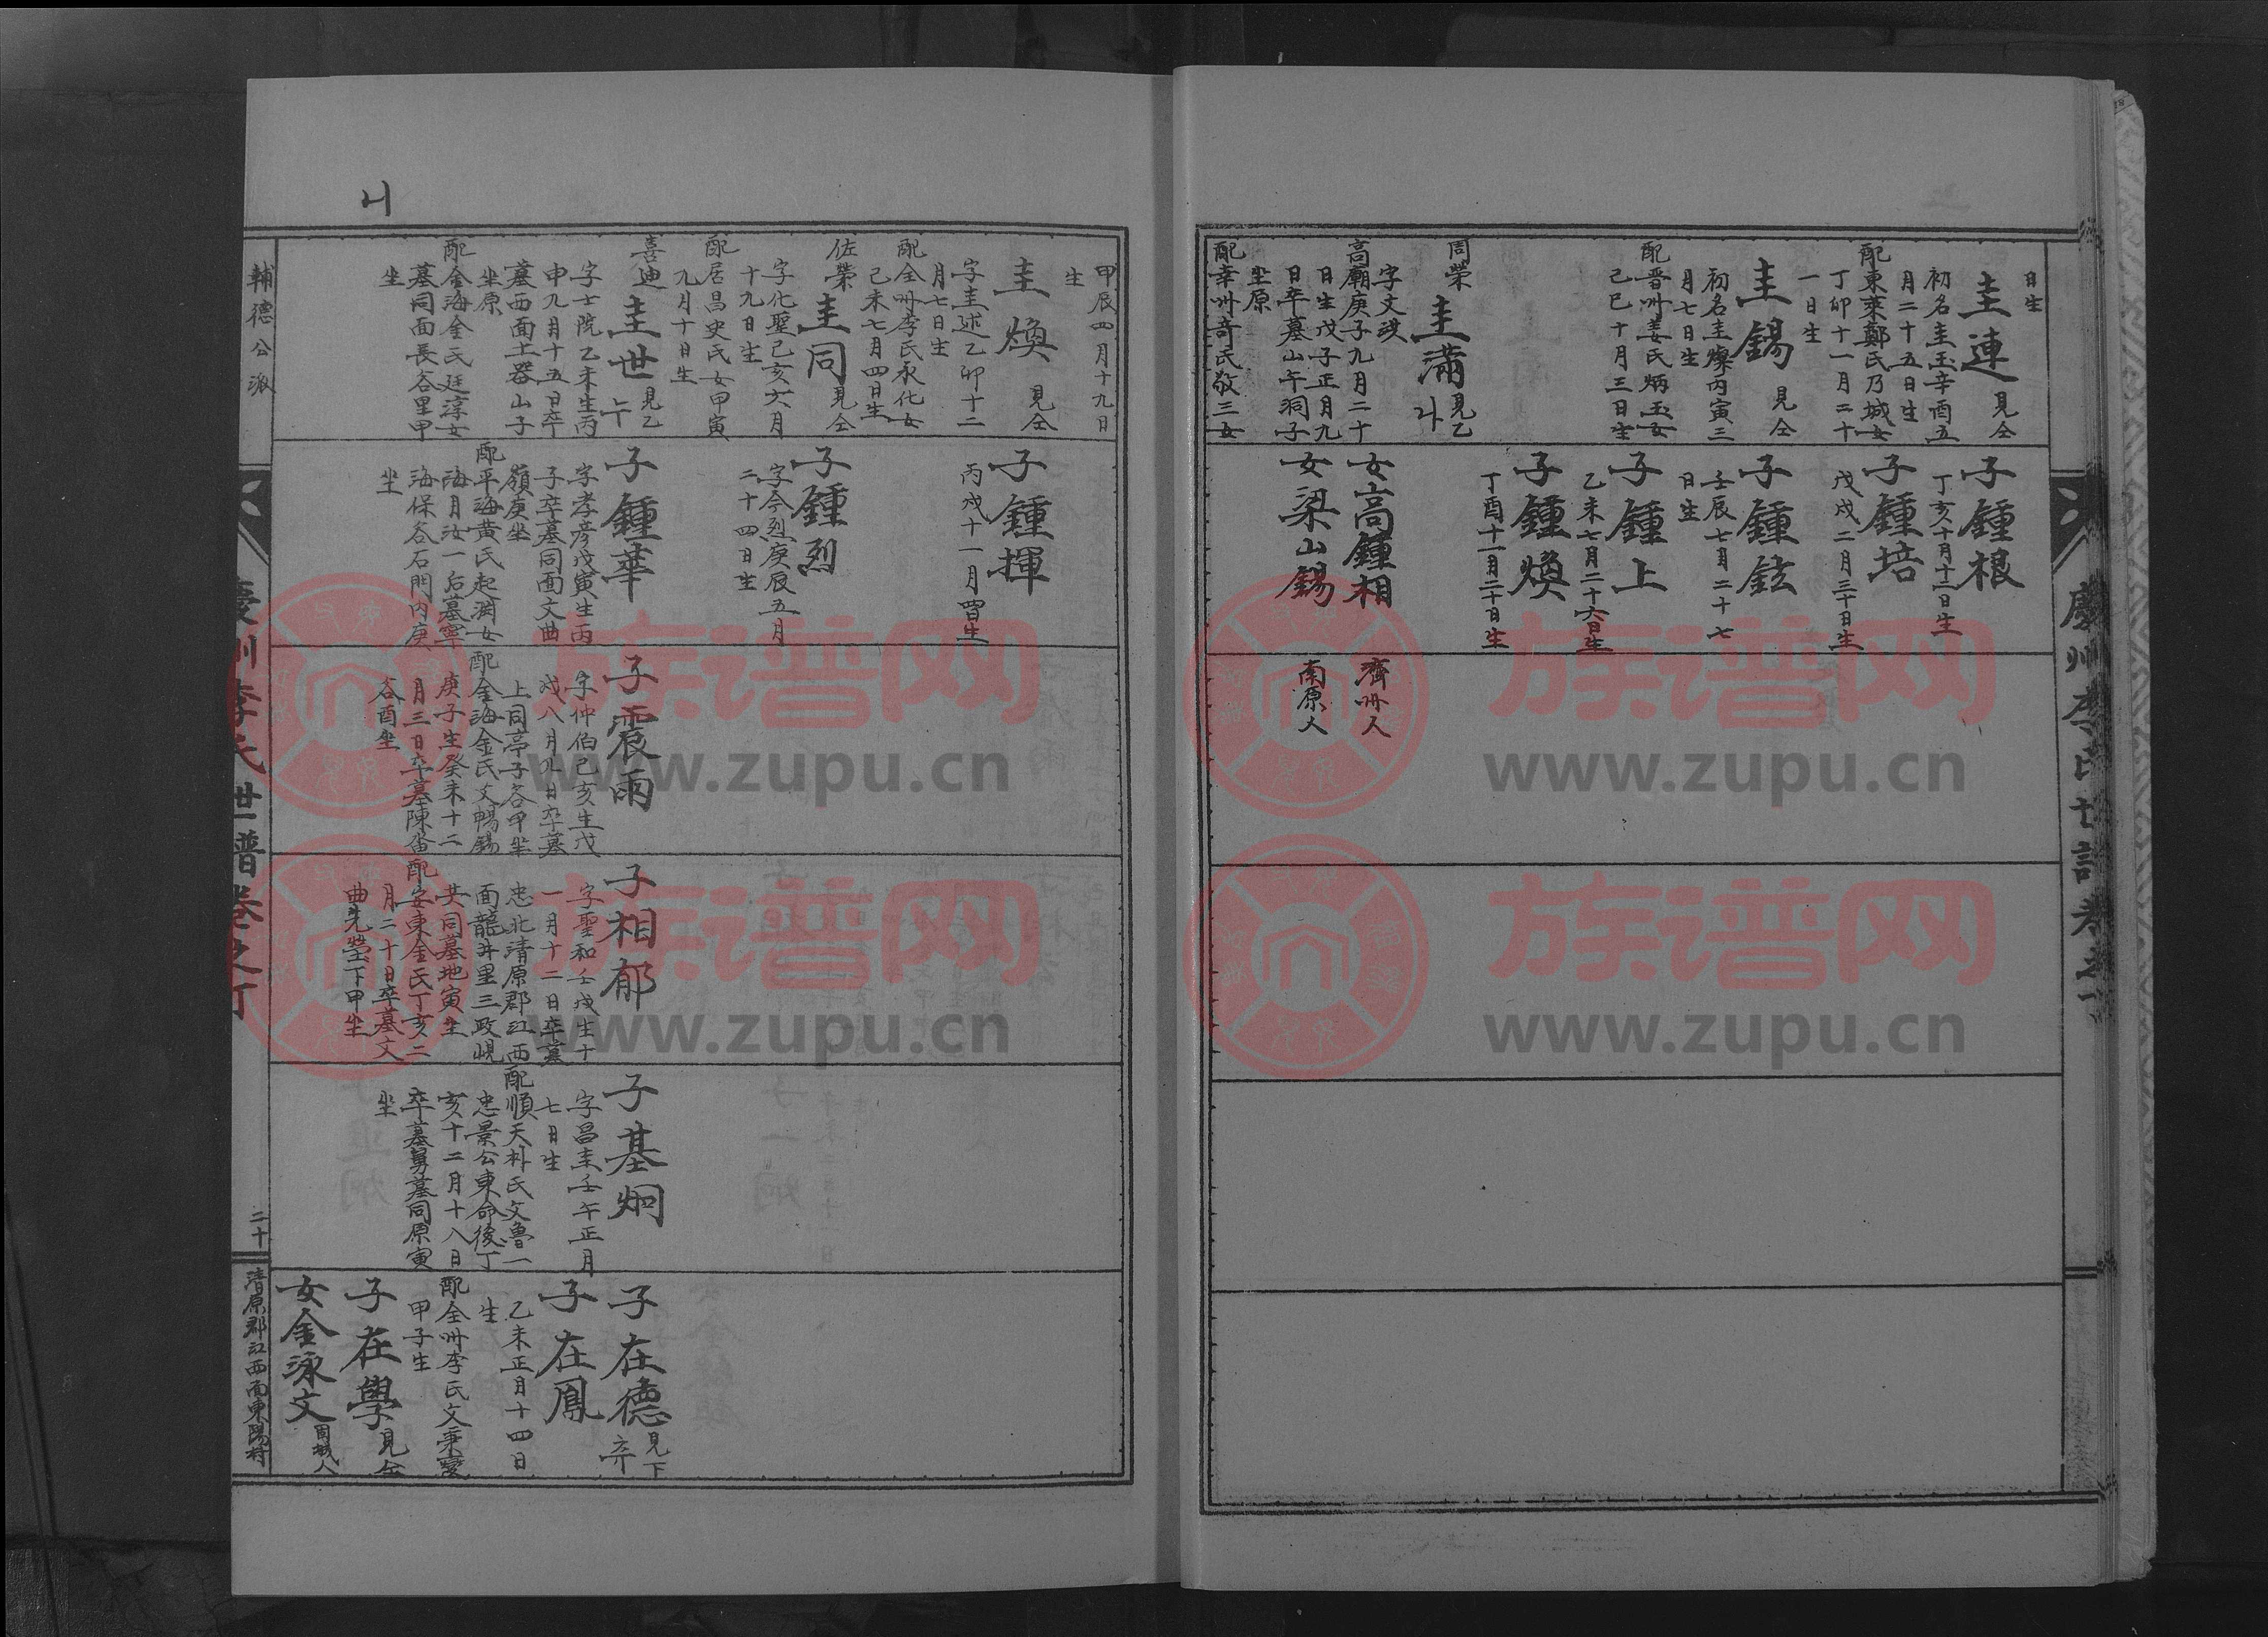 慶州李氏世譜卷之丁
日生
圭連 見仝
初名圭玉辛酉五
月二十五日生
配東萊鄭氏乃城女
丁卯十一月二十
一日生
圭錫 見仝
初名圭燦丙寅三
月七日生
配晋州姜氏炳玉女
己巳十月三日生
周榮
圭滿 見乙 나
字文汶
高廟庚子九月二十
日生戊子正月九
日卒墓山午洞子
坐原
配幸州奇氏敬三女
子鍾根
丁亥十月十二日生
子鍾培
戊戌二月三十日生
子鍾鉉
壬辰七月二十七
日生
子鍾上
乙未七月二十六日生
子鍾煥
丁酉十一月二十日生
女高鍾相
女梁山錫
濟州人
南原人
甲辰四月十九日
生
圭煥 見仝
字圭述乙卯十二
月七日生
配全州李氏永化女
己未七月四日生
佐榮
圭同 見仝
字化聖己亥六月
十九日生
配居昌史氏女甲寅
九月十日生
喜迪
圭世 見乙 누
字士院乙未生丙
申九月十五日卒
墓西面土器山子
坐原
配金海金氏廷淳女
墓同面長谷里甲
坐
子鍾揮
丙戌十一月四日生
子鍾烈
字今烈庚辰五月
二十四日生
子鍾華
字孝彦戊寅生丙
子卒墓同面文曲
嶺庚坐
配平海黄氏起淵女
海月汝一后墓寧
海保谷石門内庚
坐
子震雨
字仲伯己亥生戊
戌八月九日卒墓
上同亭子谷甲坐
配金海金氏文暢錫
庚子生癸未十二
月三日卒墓陳畓
谷酉坐
子相郁
字聖和壬戌生十
一月十二日卒墓
忠北清原郡江西
面龍井里三政峴
共同墓地寅坐
配安東金氏丁亥二
月二十日卒墓文
曲先塋下甲坐
子基炯
字昌圭壬午正月
七日生
配順天朴氏文魯一
忠景公東命後丁
亥十二月十八日
卒墓舅墓同原寅
坐
子在德 見下 卒
子在鳳
乙未正月十四日
生
配全州李氏文秉燮
甲子生
子在學 見仝
女金泳文 固城人
輔德公派
慶州李氏世譜卷之丁
二十
清原郡江西面東陽村
니
族谱网
www.zupu.cn
族谱网
www.zupu.cn
族谱网
www.zupu.cn
族谱网
www.zupu.cn